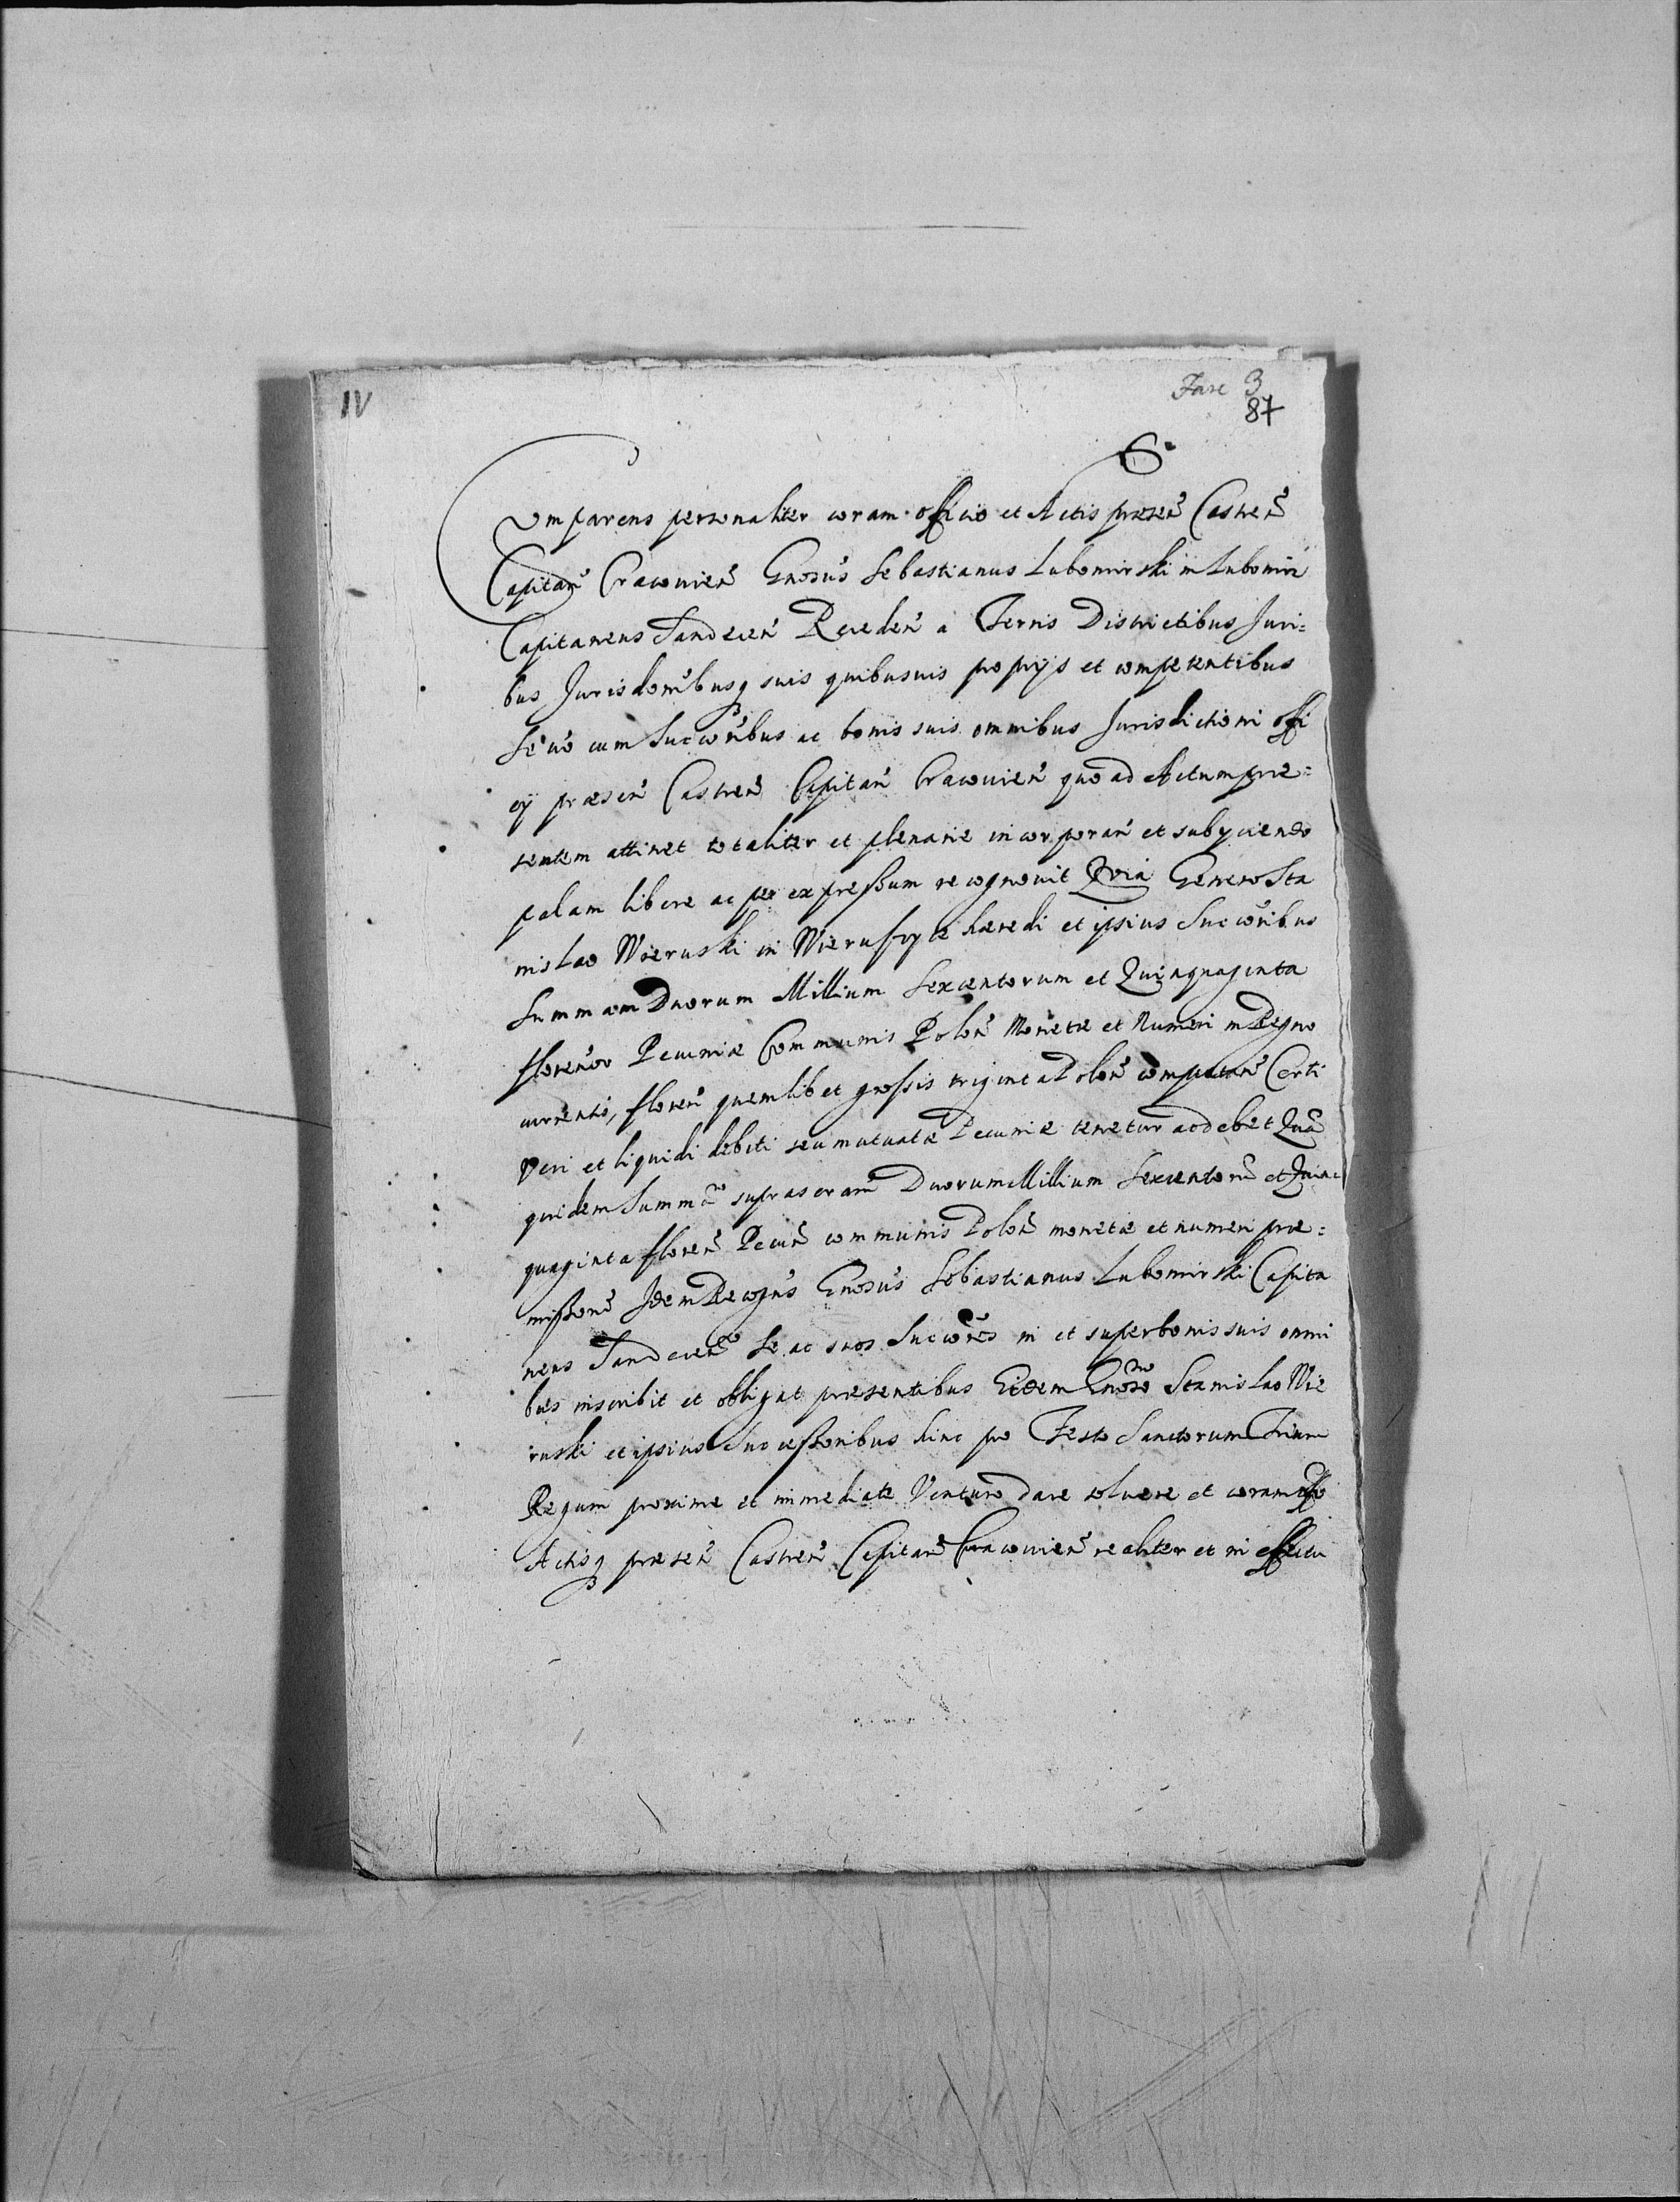 IV
Fasc 3
87
6.
Comparens personaliter coram officio et Actis præsen̄ Castren̄
Capitan̄ Cracouien̄ Gnosūs Sebastianus Lubomirski in Lubomirz
Capitaneus Sandecen̄ Receden̄ a Terris Districtibus Juri=
bus Jurisdoñibusq suis quibusuis proprijs et competentibus
Se uō cum Succoribus ac bonis suis omnibus Jurisdictioni offi
cij præsen̄ Castren̄ Capitan̄ Cracouien̄ quo ad Actum præ=
sentem attinet totaliter et plenarie incorporan̄ et subyciendo
palam libere ac per expressum recognouit Quia Generoso Sta
nislao Wieruski in hæredi et ipsius Succoribus
Summam Duorum Millium Sexcentorum et Quinquaginta
florenor Pecuniæ Communis Polon̄ Monetæ et Numeri in Regno
currentis, floren̄ quemlibet grossis triginta Polon̄ computan̄ Certi
Veri et liquidi debiti seu mutuatæ Pecuniæ tenetur ac debet Quā
quidem Summā suprascrām Duorum Millium Sexcentorū et Quin=
quaginta floren̄ Pecun̄ communis Polon̄ monetæ et numeri præ=
missorū Idem Recogn̄s Gnosūs Sebastianus Lubomirski Capita
neus Sandecen̄ Se ac suos Succores in et super bonis suis omni
bus inscribit et obligat præsentibus Eidem Gnoso Stanislao Wie
ruski et ipsius Successoribus hinc pro Festo Sanctorum Trium
Regum proxime et immediate Venturo dare soluere et coram offo
Actisq præsen̄ Castren̄ Capitan̄ Cracouien̄ realiter et in effectu